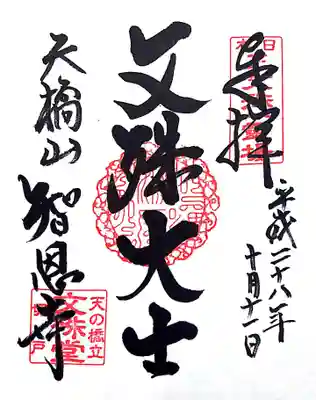 奉拝
平成二十八年
十月十一日
文殊大士
天橋山
智恩寺
天の橋立
文殊堂